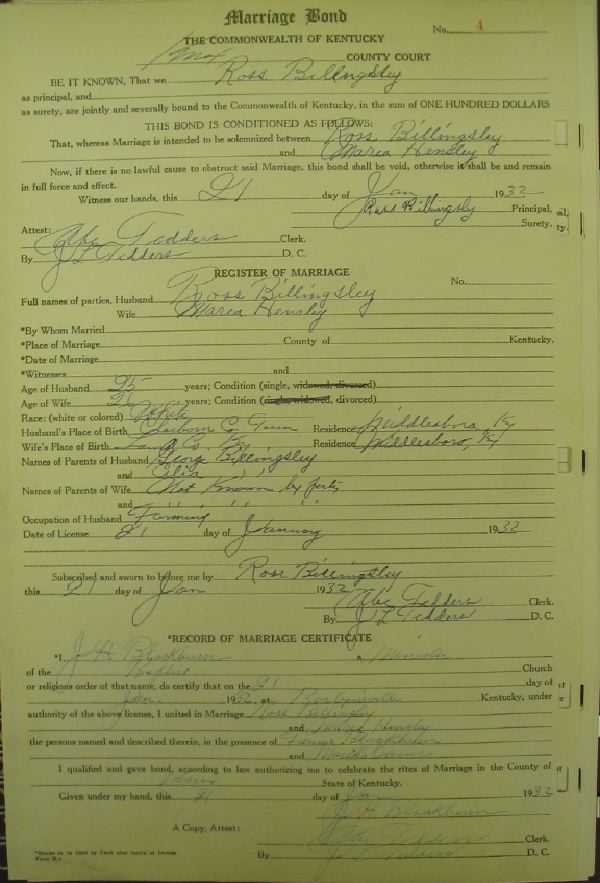 Marriage Bond
No. 4
THE COMMONWEALTH OF KENTUCKY
Knox COUNTY COURT
BE IT KNOWN, That we Ross Billingsley
as principal, and
as surety, are jointly and severally bound to the Commonwealth of Kentucky, in the sum of ONE HUNDRED DOLLARS
THIS BOND IS CONDITIONED AS FOLLOWS:
That, whereas Marriage is intended to be solemnized between Ross Billingsley
and Maria Hensley
Now, if there is no lawful cause to obstruct said Marriage, this bond shall be void, otherwise it shall be and remain
in full force and effect.
Witness our hands, this 21 day of Jan 1932
Ross Billingsly Principal,
Surety.
Attest:
Abe Tedders Clerk.
By J L Tedders D. C.
REGISTER OF MARRIAGE
No.
Full names of parties, Husband Ross Billingsley
Wife Maria Hensley
*By Whom Married
*Place of Marriage County of Kentucky.
*Date of Marriage
*Witnesses and
Age of Husband 25 years; Condition (single, widowed, divorced)
Age of Wife years; Condition (single, widowed, divorced)
Race: (white or colored) White
Husband's Place of Birth Claiborn Co, Tenn Residence Middlesboro, Ky
Wife's Place of Birth Co, Ky Residence Middlesboro, Ky
Names of Parents of Husband Georg Billingsley
and
Names of Parents of Wife Not Known by
and " "
Occupation of Husband Farming
Date of License 21 day of January 1932
Subscribed and sworn to before me by Ross Billingsley
this 21 day of Jan 1932
Abe Tedders Clerk.
By J L Tedders D. C.
*RECORD OF MARRIAGE CERTIFICATE
*I, J H Blackburn a Minister
of the Baptist Church
or religious order of that name, do certify that on the 21 day of
Jan 1932, at Barbourville Kentucky, under
authority of the above license, I united in Marriage Ross Billingsley
and Hensley
the persons named and described therein, in the presence of Blackburn
and Martha
I qualified and gave bond, according to law authorizing me to celebrate the rites of Marriage in the County of
Knox State of Kentucky.
Given under my hand, this 21 day of Jan 1932
J H Blackburn
A Copy, Attest:
Abe Tedders Clerk.
By J L Tedders D. C.